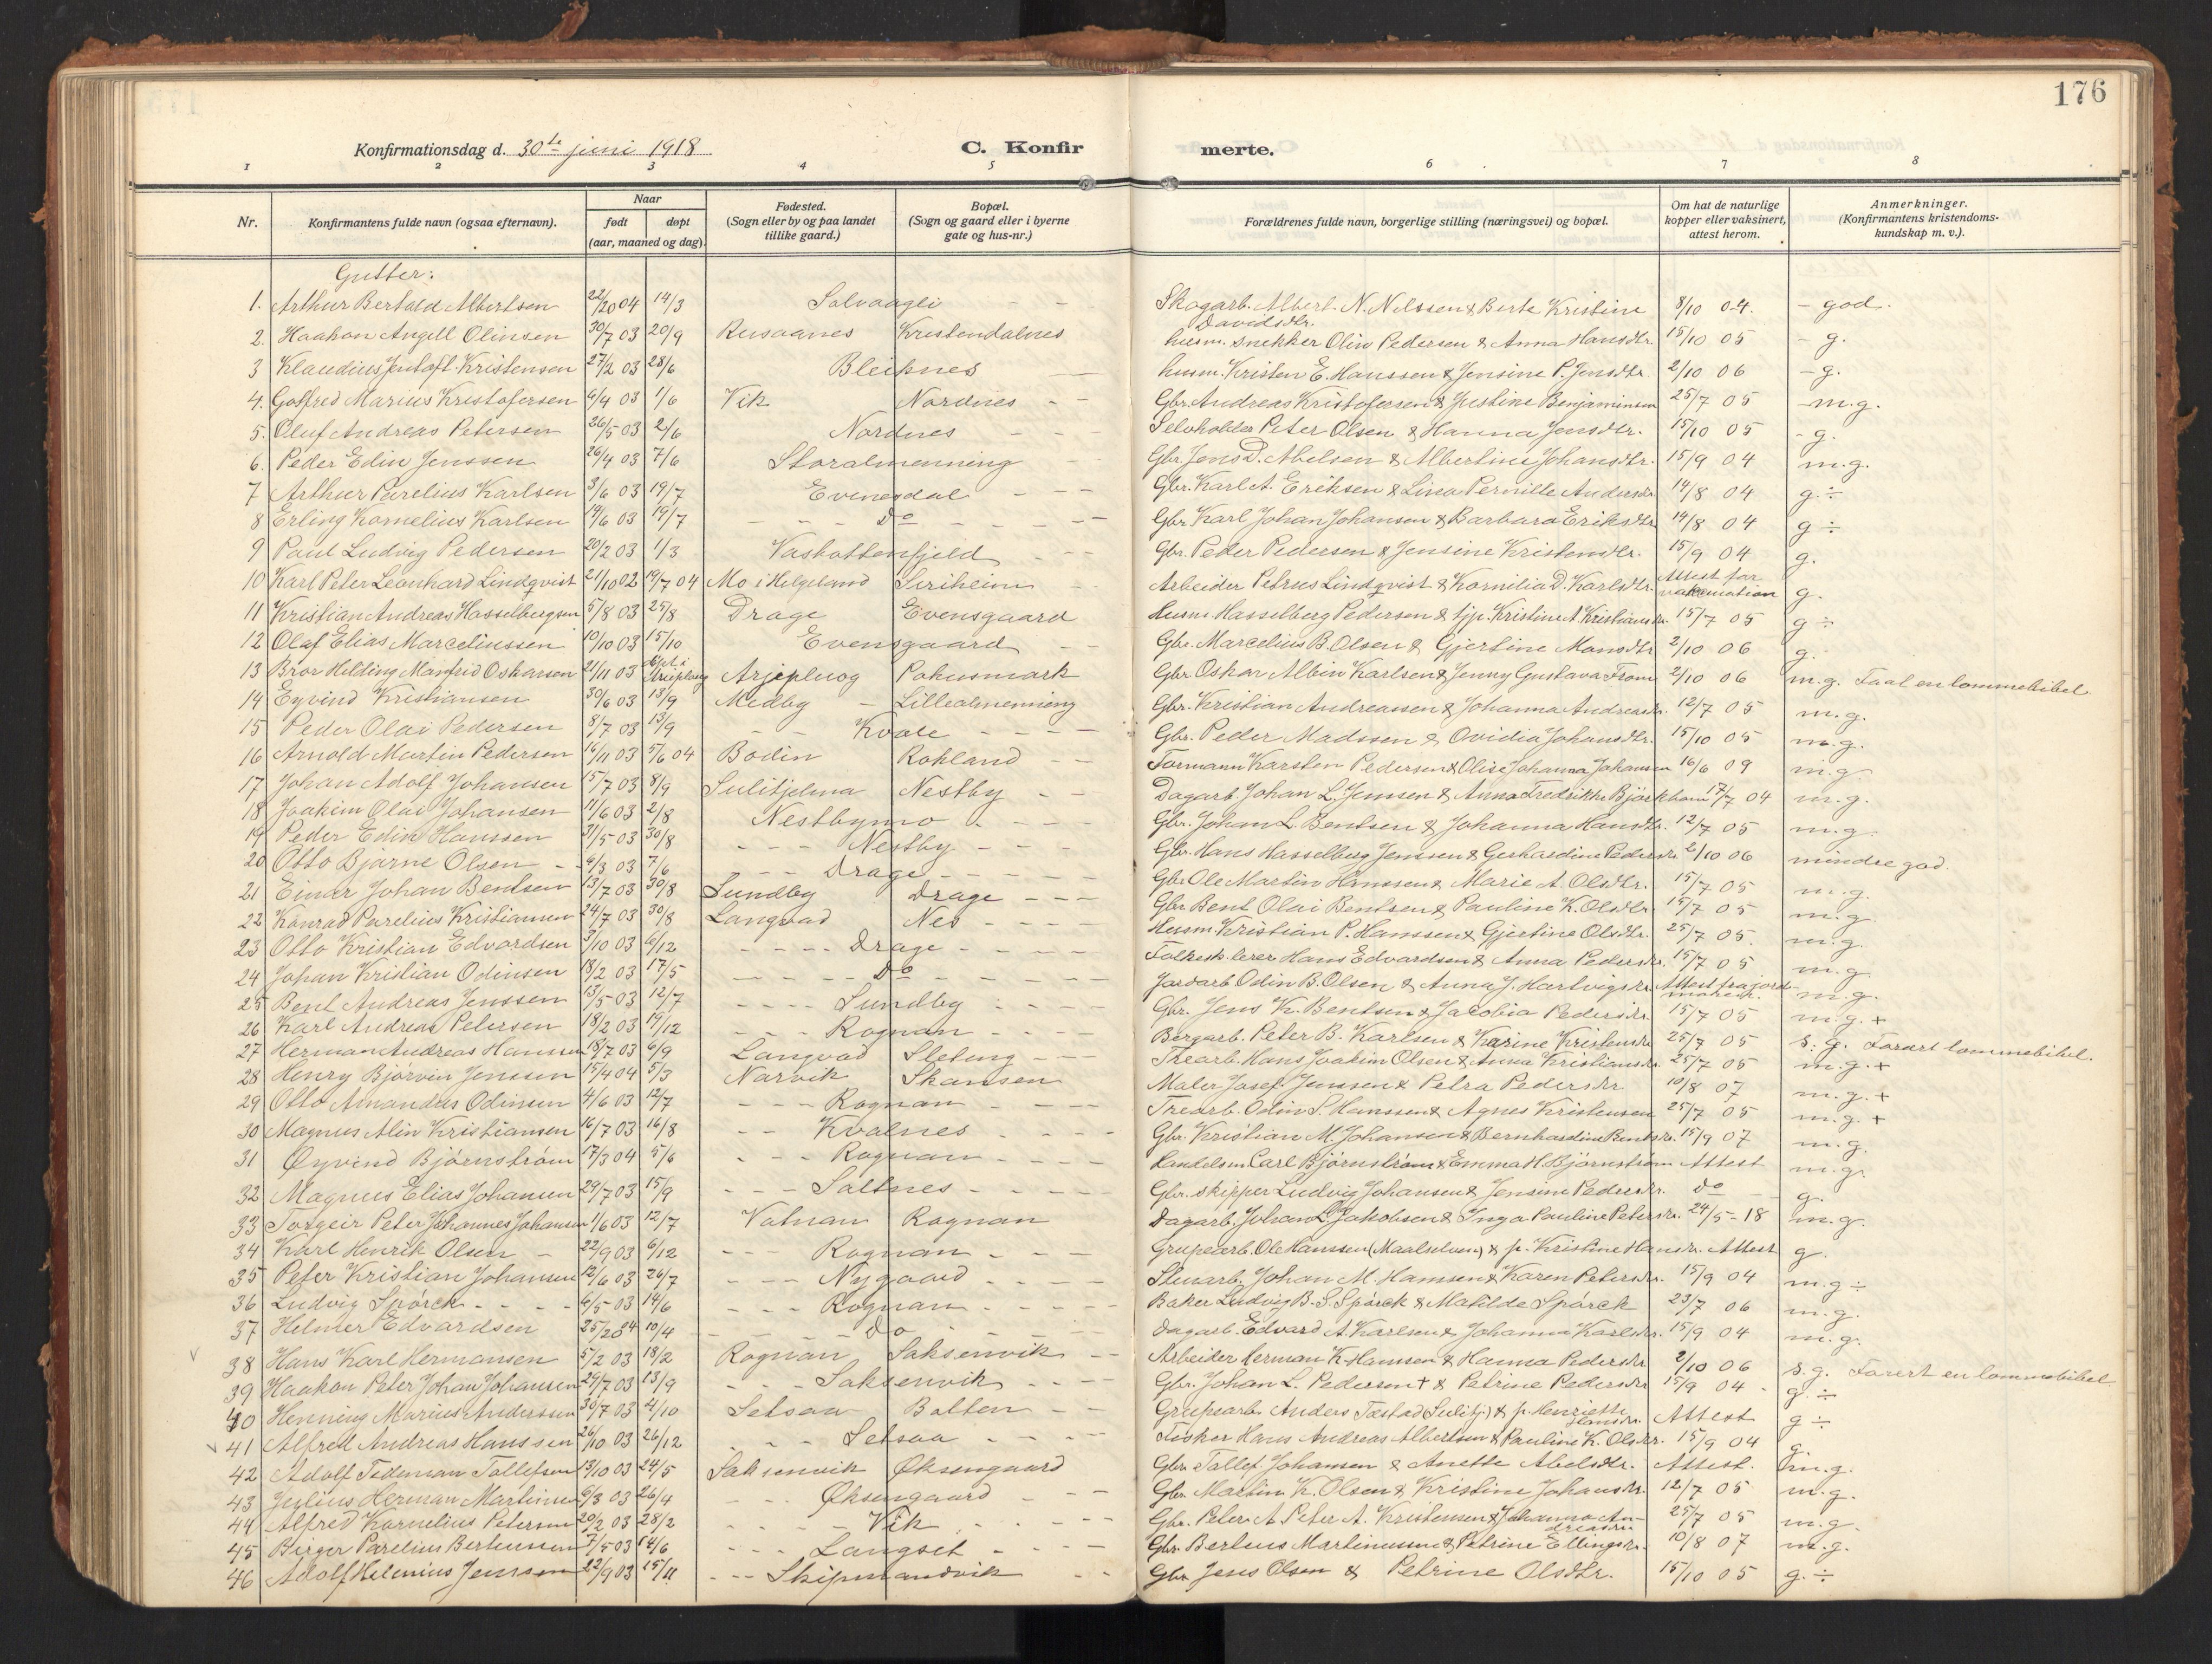 176
Konfirmationsdag d. 30te juni 1918 C. Konfirmerte.
1 2 3 4 5 6 7 8
Nr. Konfirmantens fulde navn (ogsaa efternavn). Naar født døpt (aar, maaned og dag). Fødested. (Sogn eller by og paa landet tillike gaard.) Bopæl. (Sogn og gaard eller i byerne gate og hus-nr.) Forældrenes fulde navn, borgerlige stilling (næringsvei) og bopæl. Om hat de naturlige kopper eller vaksinert, attest herom. Anmerkninger. (Konfirmantens kristendoms-kundskap m. v.).
Gutter:
1. Arthur Bertald Albertsen 14/3 Solvaagli Skogarb. Albert N. Nilssen & Berte Kristine Davidsdtr. 8/10 04. - god.
2. Haakon Angell Olinsen 30/7 03 20/9 Rusaanes Kristendalnes husm. snekker Olin Pedersen & Anna Hansdtr. 15/10 05 - g.
3 Klaudius Jentoft Kristensen 27/2 03 28/6 Bleiknes husm. Kristen E. Hanssen & Jensine P. Jensdtr. 2/10 06 - g.
4. Gotfred Marius Kristofersen 6/4 03 1/6 Vik Nordnes Gbr. Andreas Kristofersen & Justine Benjaminsen 25/7 05 - m.g.
5. Oluf Andreas Petersen 26/5 03 2/6 Nordnes Selvholder Peter Olsen & Hanna Jensdtr. 15/10 05 - g.
6. Peder Edin Jenssen 26/4 03 7/6 Storalmenning Gbr. Jens D. Abelsen & Albertine Johansdtr. 15/9 04 m.g.
7 Arthur Parelius Karlsen 3/6 03 19/7 Evenesdal Gbr. Karl A. Eriksen & Lina Pernille Andersdtr. 14/8 04 g. ÷
8 Erling Kornelius Karlsen 19/6 03 19/7 Do Gbr. Karl Johan Johansen & Barbara Eriksdtr. 14/8 04 g ÷
9 Paul Ludvig Pedersen 20/2 03 1/3 Vasbottenfjeld Gbr. Peder Pedersen & Jensine Kristensdtr. 15/9 04 g.
10 Karl Peter Leonhard Lindqvist 21/10 02 19/7 04 Mo i Helgeland Seriheim Arbeider Petrus Lindqvist & Kornilia D. Karlsdtr. Attest for vaksination g.
11 Kristian Andreas Hasselbergsen 5/8 03 25/8 Drage Evensgaard Husm. Hasselberg Pedersen & Kristine A Kristiansdtr. 15/7 05 g ÷
12 Olaf Elias Marceliussen 10/10 03 15/10 Evensgaard Gbr. Marcelius B. Olsen & Gjertine Monsdtr 2/10 06 g.
13 Bror Hilding Manfred Oskarsen 21/11 03 Arjepluog Pohusmark Gbr. Oskar Albin Karlsen & Jenny Gustava From 2/10 06 m.g. Faat en lommebibel
14 Eyvind Kristiansen 30/6 03 13/9 Medby - Lillealmenning Gbr. Kristian Andreassen & Johanna Andreasdtr. 12/7 05 m.g.
15 Peder Olai Pedersen 8/7 03 13/9 Kvale Gbr. Peder Madssen & Ovidia Johansdtr. 15/10 05 m.g.
16 Arnold Martin Pedersen 16/11 03 5/6 04 Bodin Rokland Formann Karsten Pedersen & Olise Johanna Johansen 16/6 09 m.g
17 Johan Adolf Johansen 15/7 03 8/9 Sulitjelma Nestby Dagarb. Johan L. Jenssen & Anna Fredrikke Björkbom 17/7 04 m.g.
18 Joakim Olai Johansen 11/6 03 2/8 Nestbymo Gbr. Johan L. Bentsen & Johanna Hansdtr. 12/7 05 m.g.
19 Peder Edin Hanssen 31/5 03 30/8 Nestby Gbr. Hans Hasselberg Jenssen & Gerhardine Pedersdtr. 2/10 06 mindre god.
20 Otto Bjarne Olsen 6/3 03 7/6 Drage Gbr. Ole Martin Hanssen & Marie A. Olsdtr. 15/7 05 m.g.
21 Einar Johan Bentsen 13/7 03 30/8 Sundby Drage Gbr. Bent Olai Bentsen & Pauline K. Olsdtr. 15/7 05 m.g
22 Konrad Parelius Kristiansen 24/7 03 30/8 Langvad Nes Husm. Kristian P. Hanssen & Gjertine Olsdtr. 25/7 05. m.g.
23 Otto Kristian Edvardsen 3/10 03 6/12 Drage Folkesk.lerer Hans Edvardsen & Anna Pedersdtr. 15/7 05 m.g
24 Johan Kristian Odinsen 18/2 03 17/5 Do Jordarb. Odin B. Olsen & Anna J. Hartvigsdtr. Attest fra jordmoderen m.g.
25 Bent Andreas Jenssen 13/5 03 12/7 Sundby Gbr. Jens K. Bentsen & Jacobia Pedersdtr. 15/7 05 m.g. +
26 Karl Andreas Petersen 18/2 03 19/12 Rognan Bergarb. Peter B. Karlsen & Karine Kristensdtr 25/7 05 s. g. Foræret lommebibel.
27 Herman Andreas Hanssen 18/7 03 6/9 Langvad Sleteng Trearb. Hans Joakim Olsen & Anna Kristiansdtr. 25/7 05 m.g. +
28 Henry Bjørvin Jenssen 15/4 04 5/3 Narvik Skansen Maler Josef Jenssen & Petra Pedersdtr 10/8 07 m.g. +
29 Otto Amandus Odinsen 4/6 03 12/7 Rognan Trearb. Odin S. Hanssen & Agnes Kristensen 25/7 05 m.g. +
30 Magnus Alin Kristiansen 16/7 03 16/8 Kvalnes Gbr. Kristian M. Johansen & Bernhardine Bentsdtr. 15/9 07 m.g
31 Øyvind Björnström 17/3 04 5/6 Rognan Handelsm Carl Björnström & Emma H Björnström Attest m.g.
32 Magnus Elias Johansen 29/7 03 15/9 Saltnes Gbr. skipper Ludvig Johansen & Jensine Pedersdtr. do g.
33 Torgeir Peter Johannes Johansen 1/6 03 12/7 Vatnan Rognan Dagarb. Johan L Jakobsen & Inga Pauline Petersdtr. 24/5 - 18 m.g.
34 Karl Henrik Olsen 22/9 03 6/12 Rognan Grupearb. Ole Hanssen (Maalselven) & Kristine Hansdtr. Attest g.
35 Peter Kristian Johansen 12/6 03 26/7 Nygaard Stenarb. Johan M. Hanssen & Karen Petersdtr. 15/9 04 m.g ÷
36 Ludvig Spörck 6/5 03 14/6 Rognan Baker Ludvig B. S. Spörck & Matilde Spörck 23/7 06 m.g.
37 Helmer Edvardsen 10/4 Do Dagarb. Edvard A. Karlsen & Johanna Karlsdtr. 15/9 04 m.g.
38 Hans Karl Hermansen 5/2 03 18/2 Rognan Saksenvik Arbeider Herman K. Hansen & Hanna Pedersdtr 2/10 06 s.g. Foræret en lommebibel
39 Haakon Peter Johan Johansen 29/7 03 13/9 Saksenvik Gbr. Johan L. Pedersen + & Petrine Pedersdtr 15/9 04 g. ÷
40 Henning Marius Anderssen 30/7 03 4/10 Setsaa Botten Grupearb. Anders Tæstad (Sulitj.) & Henriette Hansdtr. Attest g ÷
41 Alfred Andreas Hanssen 26/10 03 26/12 Setsaa Fisker Hans Andreas Albertsen & Pauline K. Olsdtr. 15/9 04 g.
42 Adolf Tideman Tollefsen 13/10 03 24/5 Saksenvik Øksengaard Gbr. Tollef Johansen & Anette Abelsdtr. Attest. m.g.
43 Julius Herman Martinsen 6/3 03 26/4 Øksengaard Gbr. Martin K. Olsen & Kristine Johansdtr. 12/7 05 m.g.
44 Alfred Kornelius Petersen 20/2 03 28/2 Vik Gbr. Peter A Peter A. Kristensen & Johanna Andreasdtr 25/7 05 m.g
45 Birger Parelius Berteussen 7/5 03 14/6 Langset Gbr. Berteus Martinussen & Petrine Ellingsdtr. 10/8 07 m.g.
46 Adolf Helenius Jenssen 22/9 03 15/11 Skipmandvik Gbr Jens Olsen & Petrine Olsdtr. 15/10 05 g. ÷